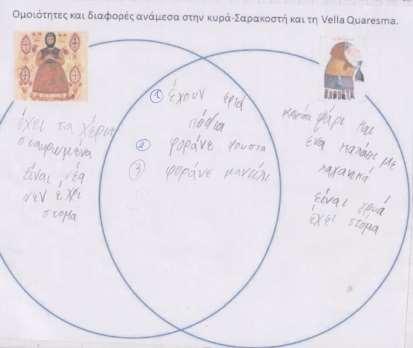 Ομοιότητες και διαφορές ανάμεσα στην κυρά-Σαρακοστή και τη Vella Quaresma.
έχει τα χέρια
σταυρωμένα
είναι νέα
δεν έχει
στομα
① έχουν
πόδια
② φοράνε φουστα
③ φοράνε μαντίλι
κρατάει ψάρι και
ένα καλάθι με
λαχανικά
είναι γριά
έχει στομα